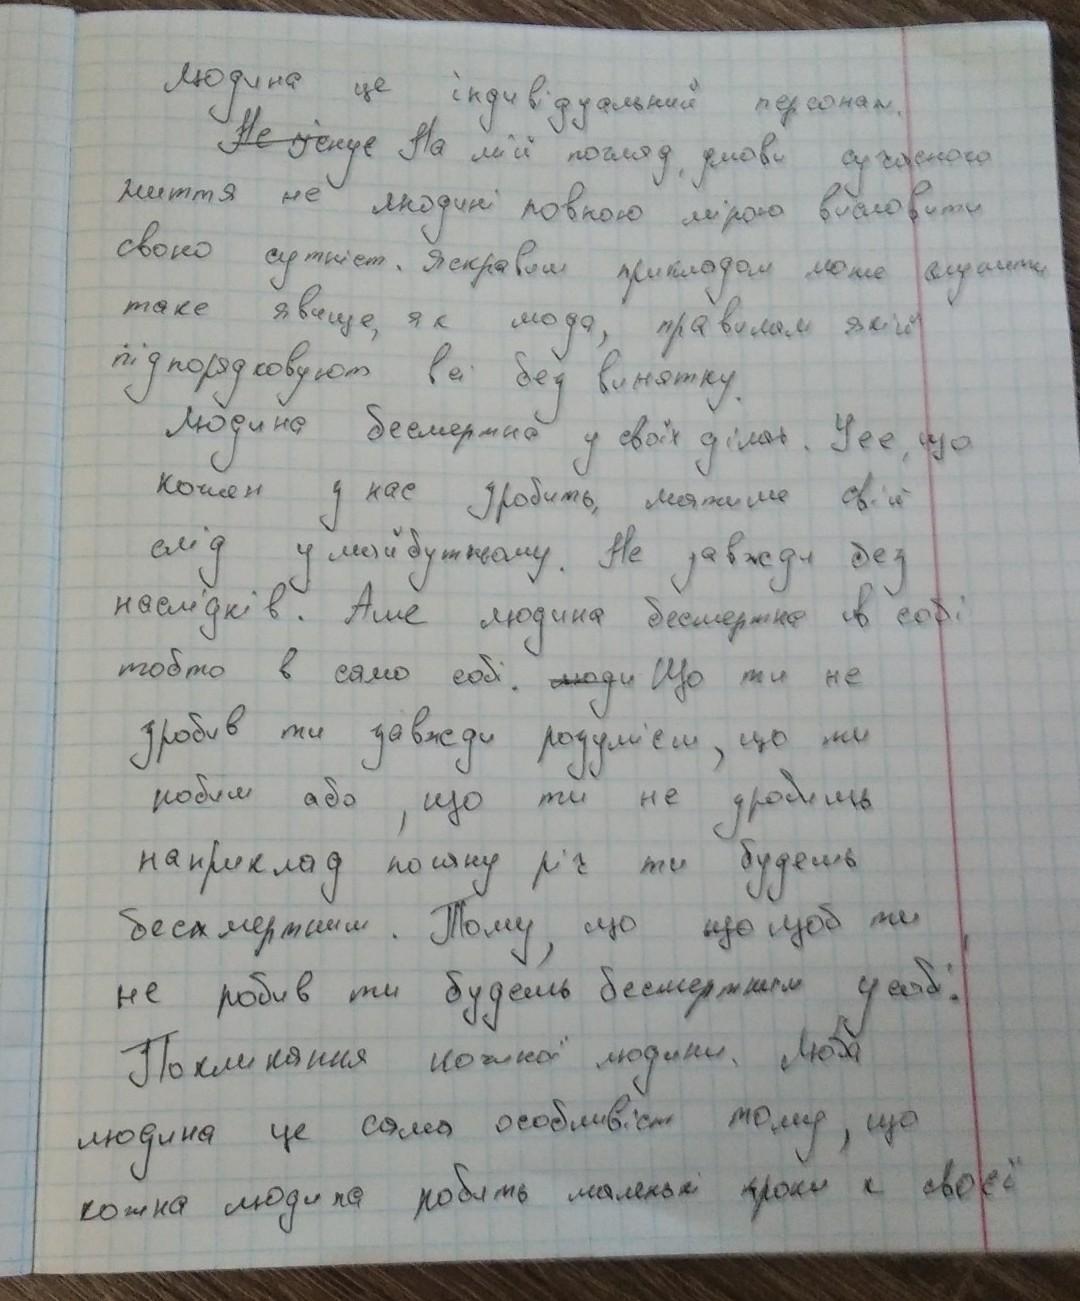 Людина це індивідуальний персонаж.
На мій погляд, умови сучасного
життя не людині повною мірою висловити
свою сутніст. Яскравим прикладом може служити
таке явище, як мода, правилам якій
підпорядковуют всі без винятку.
Людина бесмертна у своїх ділах. Усе, що
кожен у нас зробить, матиме свій
слід у майбутньому. Не завжди без
наслідків. Але людина бесмертна в собі
тобто в само собі. люди Що ти не
зробив ти завжди розумієш, що ти
робиш або, що ти не зробишь
наприклад погану річ ти будешь
бесмертним. Тому, що що щоб ти
не робив ти будешь бесмертним у собі.
Покликання кожної людини. Люба
людина це сама особливіст тому, що
кожна людина робить маленькі кроки к своєї